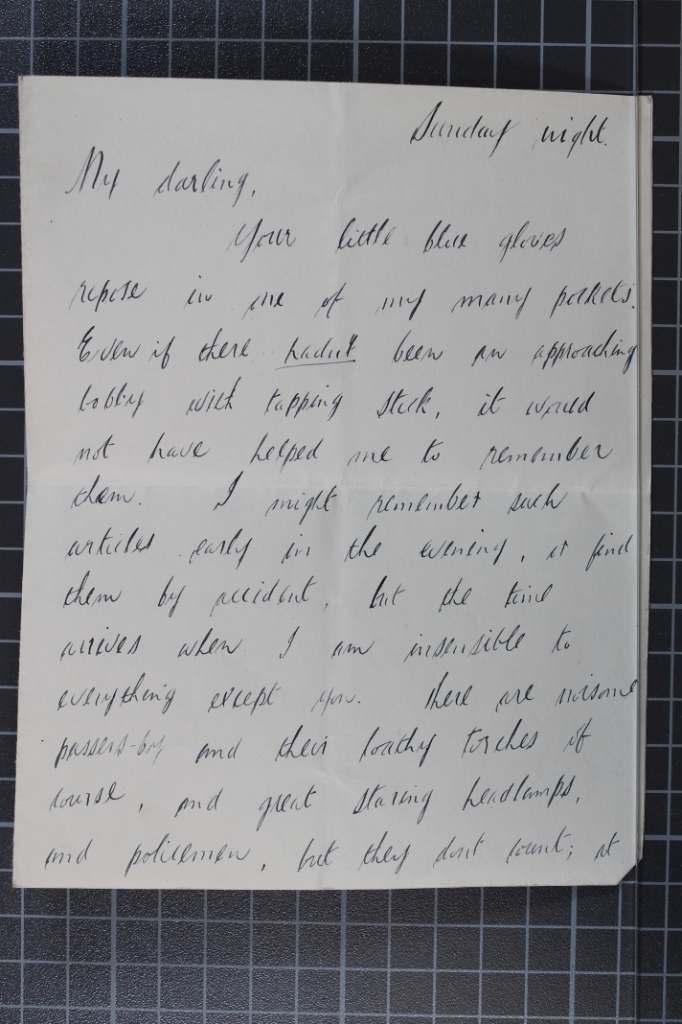 Sunday night.
My darling,
Your little blue gloves
repose in one of my many pockets.
Even if there hadn't been an approaching
bobby with tapping stick, it would
not have helped me to remember
them. I might remember such
articles early in the evening, or find
them by accident, but the time
arrives when I am insensible to
everything except you. There are noisome
passers-by and their loathy torches of
course, and great staring headlamps,
and policemen, but they don't count; at